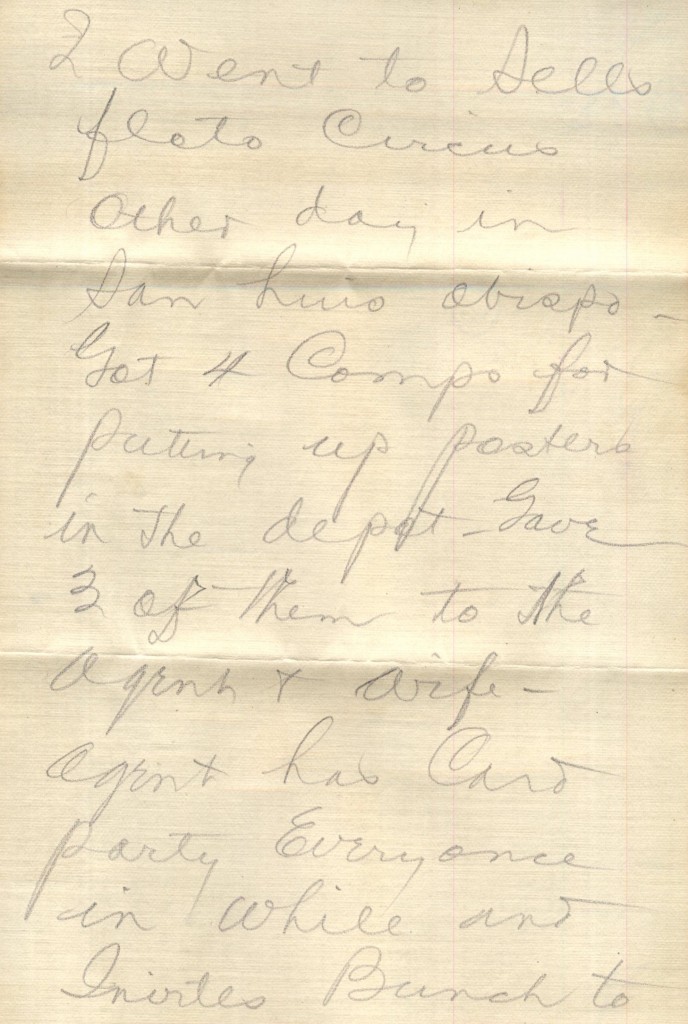 I Went to Sells
floto Circus
Other day in
San Luis obispo -
Got 4 Comps for
putting up posters
in the depot - Gave
3 of them to the
agent & wife -
Agent has Card
party Everyonce
in while and
Invites Bunch to